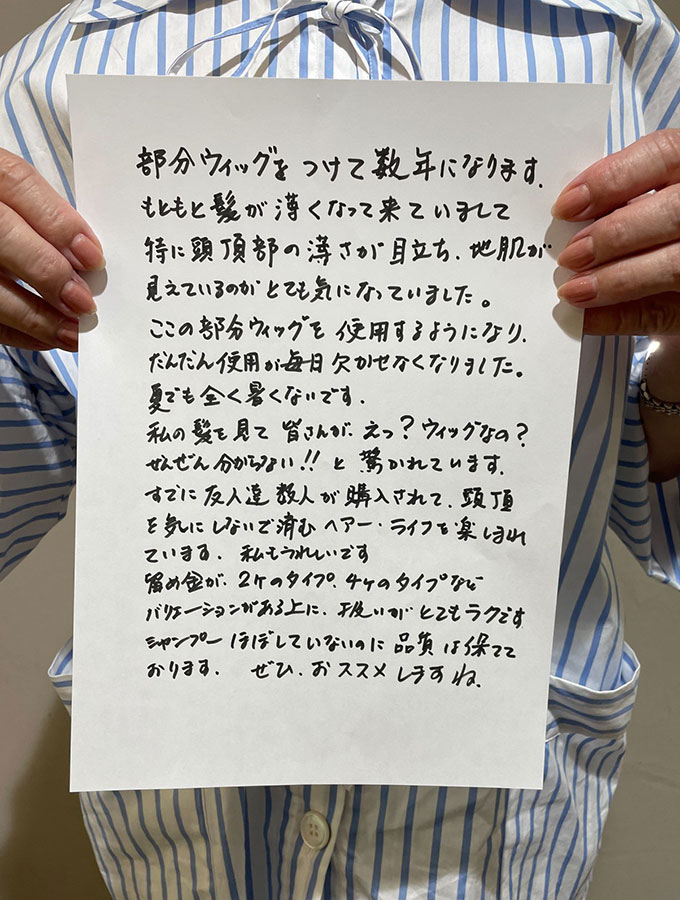 部分ウィッグをつけて数年になります.
もともと髪が薄くなって来ていまして
特に頭頂部の薄さが目立ち、地肌が
見えているのがとても気になっていました。
ここの部分ウィッグを使用するようになり、
だんだん使用が毎日欠かせなくなりました。
夏でも全く暑くないです.
私の髪を見て皆さんが、えっ?ウィッグなの?
ぜんぜん分からない!!と驚かれています.
すでに友人達数人が購入されて、頭頂
を気にしないで済むヘアー・ライフを楽しまれ
ています. 私もうれしいです
留め金が、2ケのタイプ、4ケのタイプなど
バリエーションがある上に、扱いがとてもラクです
シャンプーほぼしていないのに品質は保てて
おります. ぜひ、おススメしますね.